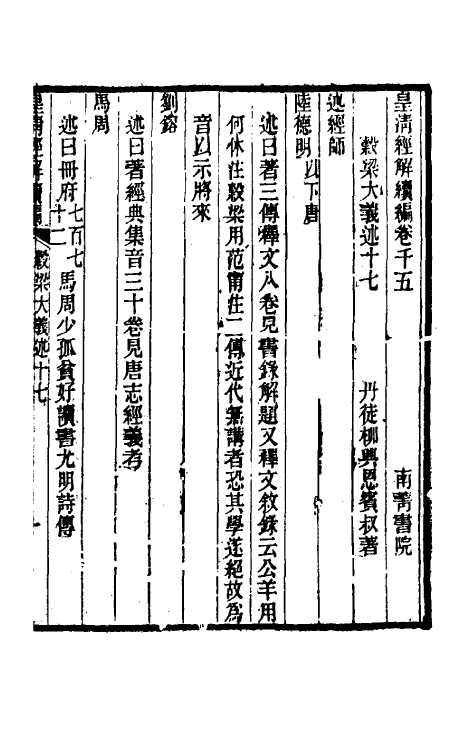 皇淸經解續編卷千五　南菁書院
穀梁大義述十七　丹徒柳興恩賓叔著
述經師
陸德明以下唐
述曰著三傳釋文八卷見書錄解題又釋文敘錄云公羊用
何休注穀梁用范甯注二傳近代無講者恐其學遂絕故爲
音以示將來
劉鎔
述曰著經典集音三十卷見唐志經義考
馬周
述曰冊府七百七十二馬周少孤貧好讀書尤明詩傳
皇淸經解續編　穀梁大義述十七　一